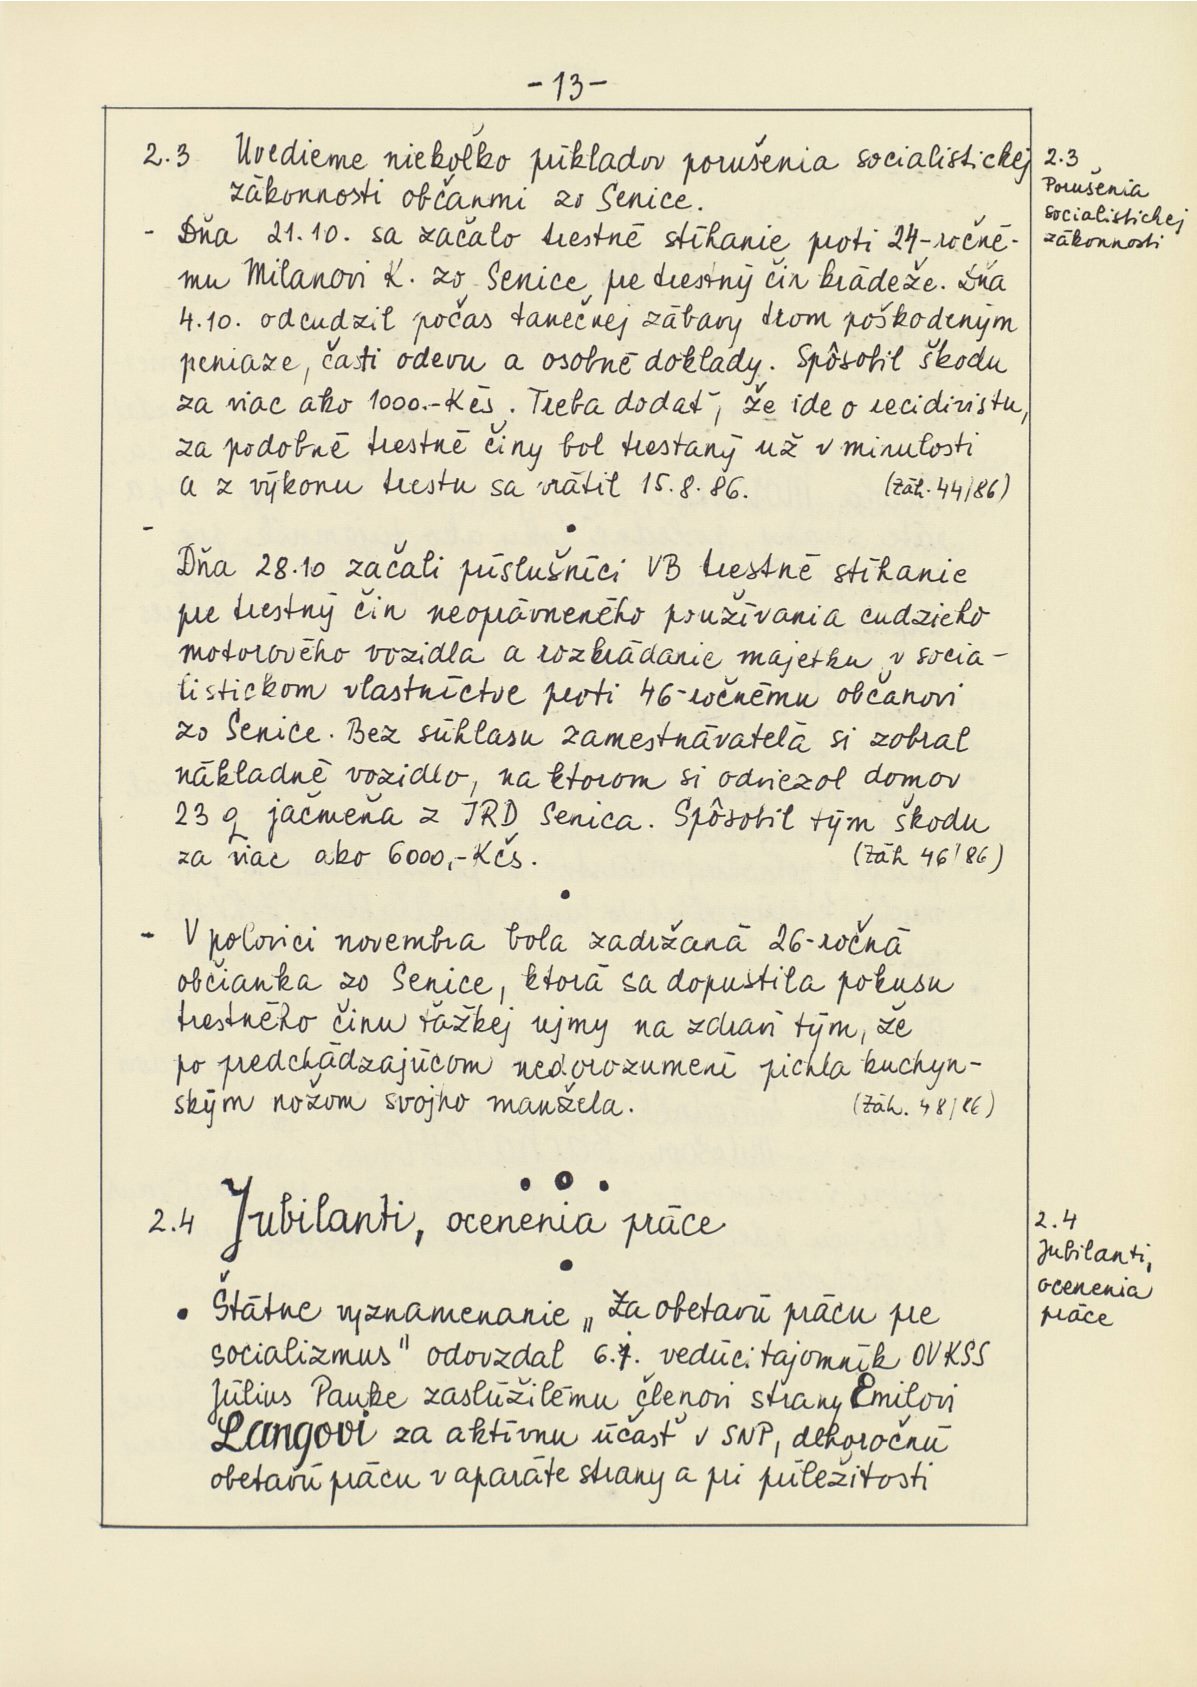 -13-
2.3 Uvedieme niekoľko príkladov porušenia socialistickej
zákonnosti občanmi zo Senice.
2.3
Porušenia
socialistickej
zákonnosti
- Dňa 21.10. sa začalo trestné stíhanie proti 24-ročné-
mu Milanovi K. zo Senice pre trestný čin krádeže. Dňa
4.10. odcudzil počas tanečnej zábavy trom poškodeným
peniaze, časti odevu a osobné doklady. Spôsobil škodu
za viac ako 1000.-Kčs. Treba dodať, že ide o recidivistu,
za podobné trestné činy bol trestaný už v minulosti
a z výkonu trestu sa vrátil 15.8.86. (Záh. 44/86)
-
Dňa 28.10 začali príslušníci VB trestné stíhanie
pre trestný čin neoprávneného používania cudzieho
motorového vozidla a rozkrádanie majetku v socia-
listickom vlastníctve proti 46-ročnému občanovi
zo Senice. Bez súhlasu zamestnávateľa si zobral
nákladné vozidlo, na ktorom si odviezol domov
23 q jačmeňa z JRD Senica. Spôsobil tým škodu
za viac ako 6000,-Kčs. (Záh 46/86)
- V polovici novembra bola zadržaná 26-ročná
občianka zo Senice, ktorá sa dopustila pokusu
trestného činu ťažkej ujmy na zdraví tým, že
po predchádzajúcom nedorozumení pichla kuchyn-
ským nožom svojho manžela. (Záh. 48/86)
2.4 Jubilanti, ocenenia práce
2.4
Jubilanti,
ocenenia
práce
• Štátne vyznamenanie „Za obetavú prácu pre
socializmus" odovzdal 6.1. vedúci tajomník OV KSS
Július Pauke zaslúžilému členovi strany Emilovi
Langovi za aktívnu účasť v SNP, dlhoročnú
obetavú prácu v aparáte strany a pri príležitosti